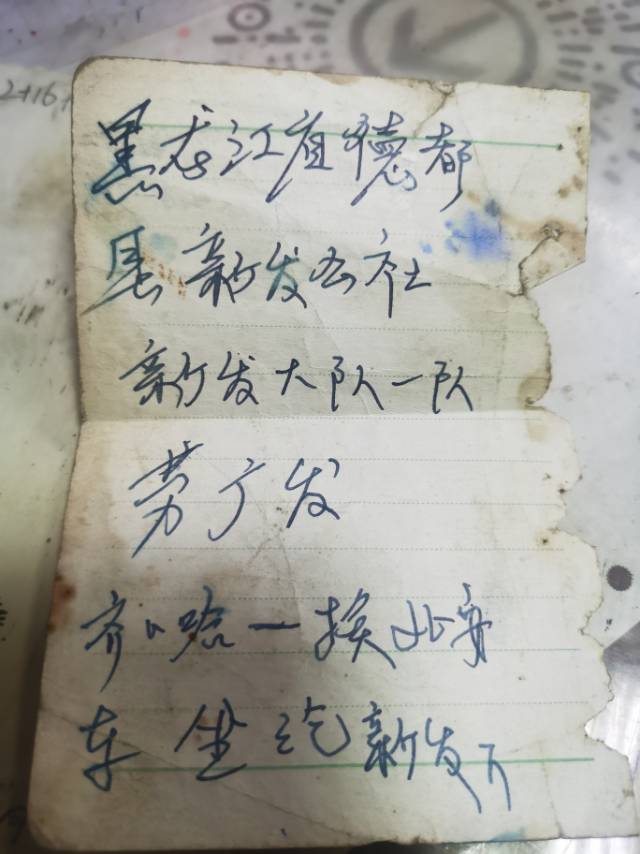 2+16
黑龙江省德都
县新发公社
新发大队一队
劳广发
齐哈一换北安
车坐汽新发下